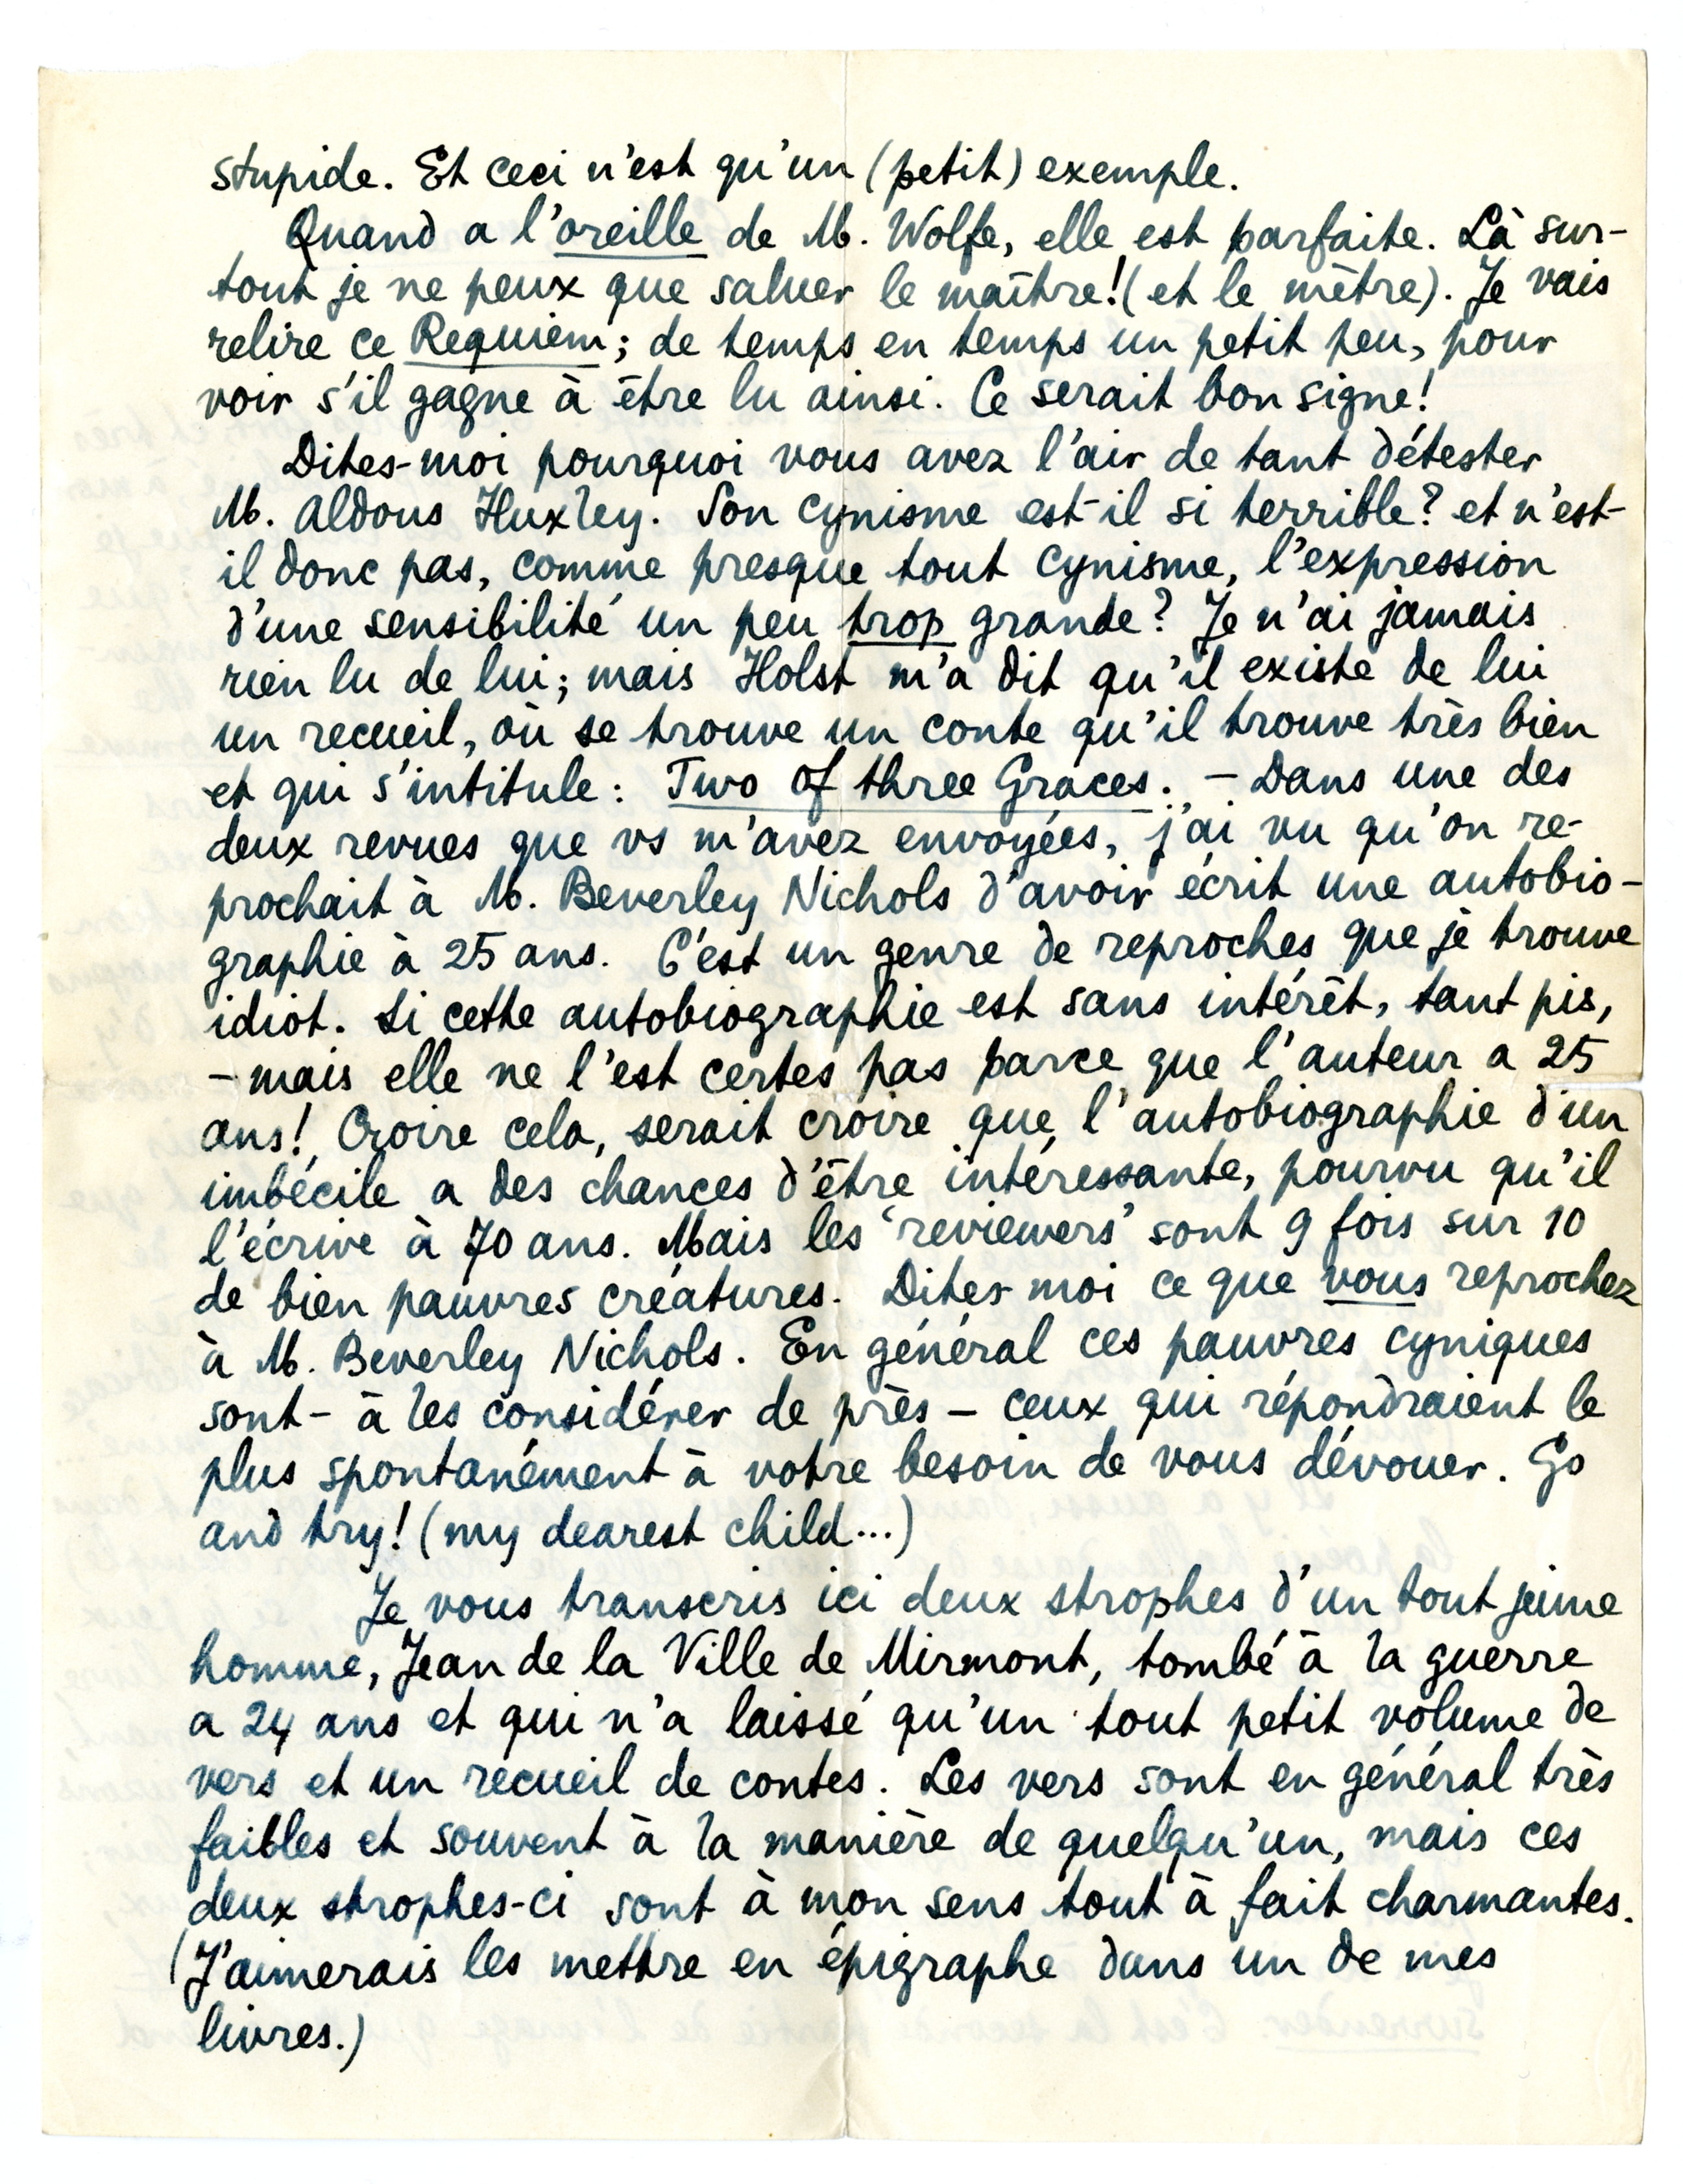 stupide. Et ceci n'est qu'un (petit) exemple.
Quand a l'oreille de M. Wolfe, elle est parfaite. Là sur-
tout je ne peux que saluer le maître! (et le mètre). Je vais
relire ce Requiem; de temps en temps un petit peu, pour
voir s'il gagne à être lu ainsi. Ce serait bon signe!
Dites-moi pourquoi vous avez l'air de tant détester
M. Aldous Huxley. Son cynisme est-il si terrible? et n'est-
il donc pas, comme presque tout cynisme, l'expression
d'une sensibilité un peu trop grande? Je n'ai jamais
rien lu de lui; mais Holst m'a dit qu'il existe de lui
un recueil, où se trouve un conte qu'il trouve très bien
et qui s'intitule: Two of three Graces. – Dans une des
deux revues que vs m'avez envoyées, j'ai vu qu'on re-
prochait à M. Beverley Nichols d'avoir écrit une autobio-
graphie à 25 ans. C'est un genre de reproches que je trouve
idiot. Si cette autobiographie est sans intérêt, tant pis,
– mais elle ne l'est certes pas parce que l'auteur a 25
ans! Croire cela, serait croire que l'autobiographie d'un
imbécile a des chances d'être intéressante, pourvu qu'il
l'écrive à 70 ans. Mais les 'reviewers' sont 9 fois sur 10
de bien pauvres créatures. Dites moi ce que vous reprochez
à M. Beverley Nichols. En général ces pauvres cyniques
sont – à les considérer de près – ceux qui répondraient le
plus spontanément à votre besoin de vous dévouer. Go
and try! (my dearest child...)
Je vous transcris ici deux strophes d'un tout jeune
homme, Jean de la Ville de Mirmont, tombé à la guerre
a 24 ans et qui n'a laissé qu'un tout petit volume de
vers et un recueil de contes. Les vers sont en général très
faibles et souvent à la manière de quelqu'un, mais ces
deux strophes-ci sont à mon sens tout à fait charmantes.
(J'aimerais les mettre en épigraphe dans un de mes
livres.)